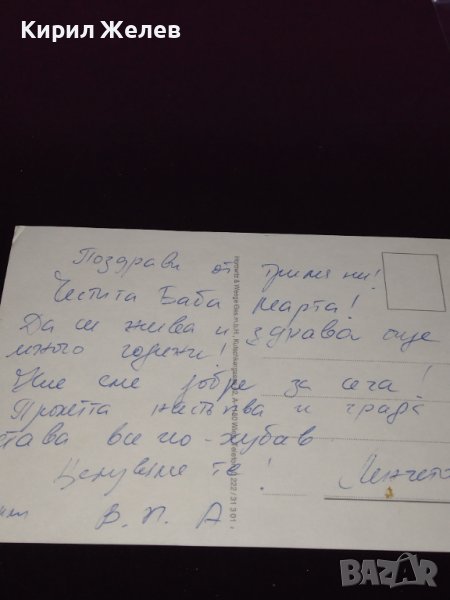 Кирил Желев
Поздрави от трима ни!
Честита Баба Марта!
Да си жива и здрава още
много години!
Ние сме добре за сега!
Пролетта настъпва и града
става все по-хубав
Целуваме те! Ленчето
В. П. А
BAZAR